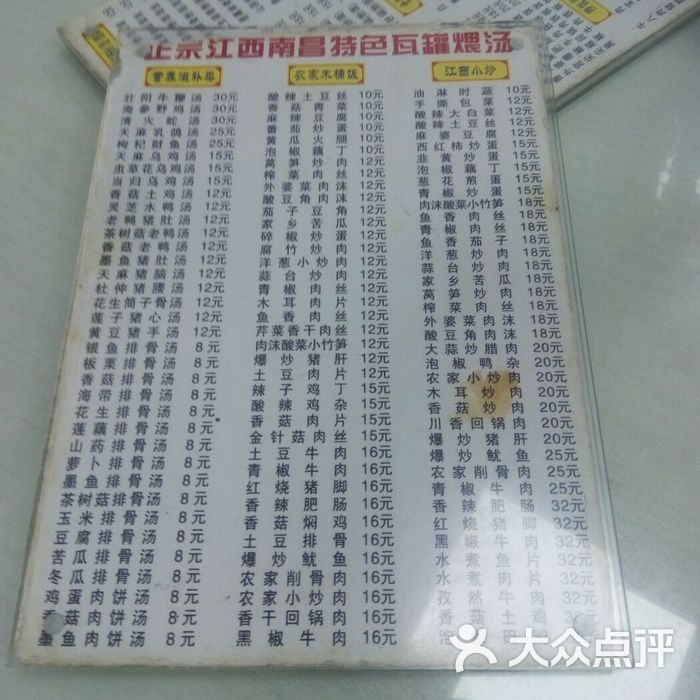 正宗江西南昌特色瓦罐煨汤
营养滋补汤
壮阳牛鞭汤 30元
海参野鸡汤 30元
清火蛇汤 30元
天麻乳鸽汤 25元
枸杞财鱼汤 25元
天麻乌鸡汤 15元
虫草花乌鸡汤 15元
当归乌鸡汤 15元
香菇土鸡汤 12元
灵芝水鸭汤 12元
老鸭猪肚汤 12元
茶树菇老鸭汤 12元
香菇老鸭汤 12元
墨鱼猪肚汤 12元
天麻猪脑汤 12元
杜仲猪腰汤 12元
花生筒子骨汤 12元
莲子猪心汤 12元
黄豆猪手汤 12元
银鱼排骨汤 8元
板栗排骨汤 8元
香菇排骨汤 8元
海带排骨汤 8元
花生排骨汤 8元
莲藕排骨汤 8元
山药排骨汤 8元
萝卜排骨汤 8元
墨鱼排骨汤 8元
茶树菇排骨汤 8元
玉米排骨汤 8元
豆腐排骨汤 8元
苦瓜排骨汤 8元
冬瓜排骨汤 8元
鸡蛋肉饼汤 8元
香菇肉饼汤 8元
墨鱼肉饼汤 8元
农家木桶饭
酸辣土豆丝 10元
香菇青菜 10元
麻辣豆腐 10元
番茄炒蛋 10元
黄瓜火腿 10元
泡椒藕丁 10元
莴笋炒肉 12元
榨菜肉丝 12元
外婆菜肉沫 12元
酸豆角肉沫 12元
茄子豆角 12元
家乡苦瓜 12元
碎椒炒蛋 12元
腐竹炒肉 12元
洋葱小炒肉 12元
蒜台炒肉 12元
青椒肉丝 12元
木耳肉片 12元
芹菜香干肉丝 12元
肉沫酸菜小竹笋 12元
爆炒猪肝 12元
土豆肉片 12元
辣子鸡丁 15元
酸辣鸡杂 15元
香菇肉片 15元
金针菇肉丝 15元
土豆牛肉 16元
青椒牛肉 16元
红烧猪脚 16元
香辣肥肠 16元
香菇焖鸡 16元
土豆排骨 16元
爆炒鱿鱼 16元
农家削骨肉 16元
农家小炒肉 16元
香干回锅肉 16元
黑椒牛肉 16元
江西小炒
油淋时蔬 10元
手撕包菜 12元
酸辣大白菜 12元
酸辣土豆丝 12元
麻婆豆腐 12元
西红柿炒蛋 15元
韭黄炒蛋 15元
泡椒藕丁 15元
葱花煎蛋 15元
青椒炒蛋 15元
肉沫酸菜小竹笋 18元
鱼香肉丝 18元
青椒肉丝 18元
鱼香茄子 18元
洋葱炒肉 18元
蒜台炒肉 18元
家乡苦瓜 18元
莴笋炒肉 18元
榨菜肉丝 18元
外婆菜肉沫 18元
酸豆角肉沫 18元
大蒜炒腊肉 20元
泡椒鸭杂 20元
农家小炒肉 20元
木耳炒肉 20元
香菇炒肉 20元
川香回锅肉 20元
爆炒猪肝 20元
爆炒鱿鱼 25元
农家削骨肉 25元
青椒牛肉 25元
香辣肥肠 32元
红烧牛 32元
黑椒牛肉 32元
水煮鱼片 32元
水煮肉片 32元
孜然牛
香菇土
泡
大众点评